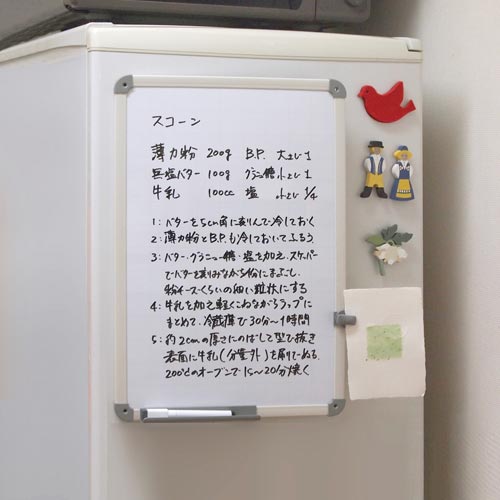 スコーン
薄力粉 200g B.P. 大さじ1
無塩バター 100g グラニュー糖 小さじ1
牛乳 100cc 塩 小さじ1/4
1:バターを5cm角に刻んで冷しておく
2:薄力粉とB.P.も冷しておいてふるう。
3:バター・グラニュー糖・塩を加え、スケッパー
でバターを刻みながら粉にまぶし、
粉チーズくらいの細い粒状にする
4:牛乳を加え軽くこねながらラップに
まとめて、冷蔵庫で30分〜1時間
5:約2cmの厚さにのばして型で抜き
表面に牛乳(分量外)を刷毛でぬる。
200℃のオーブンで15〜20分焼く